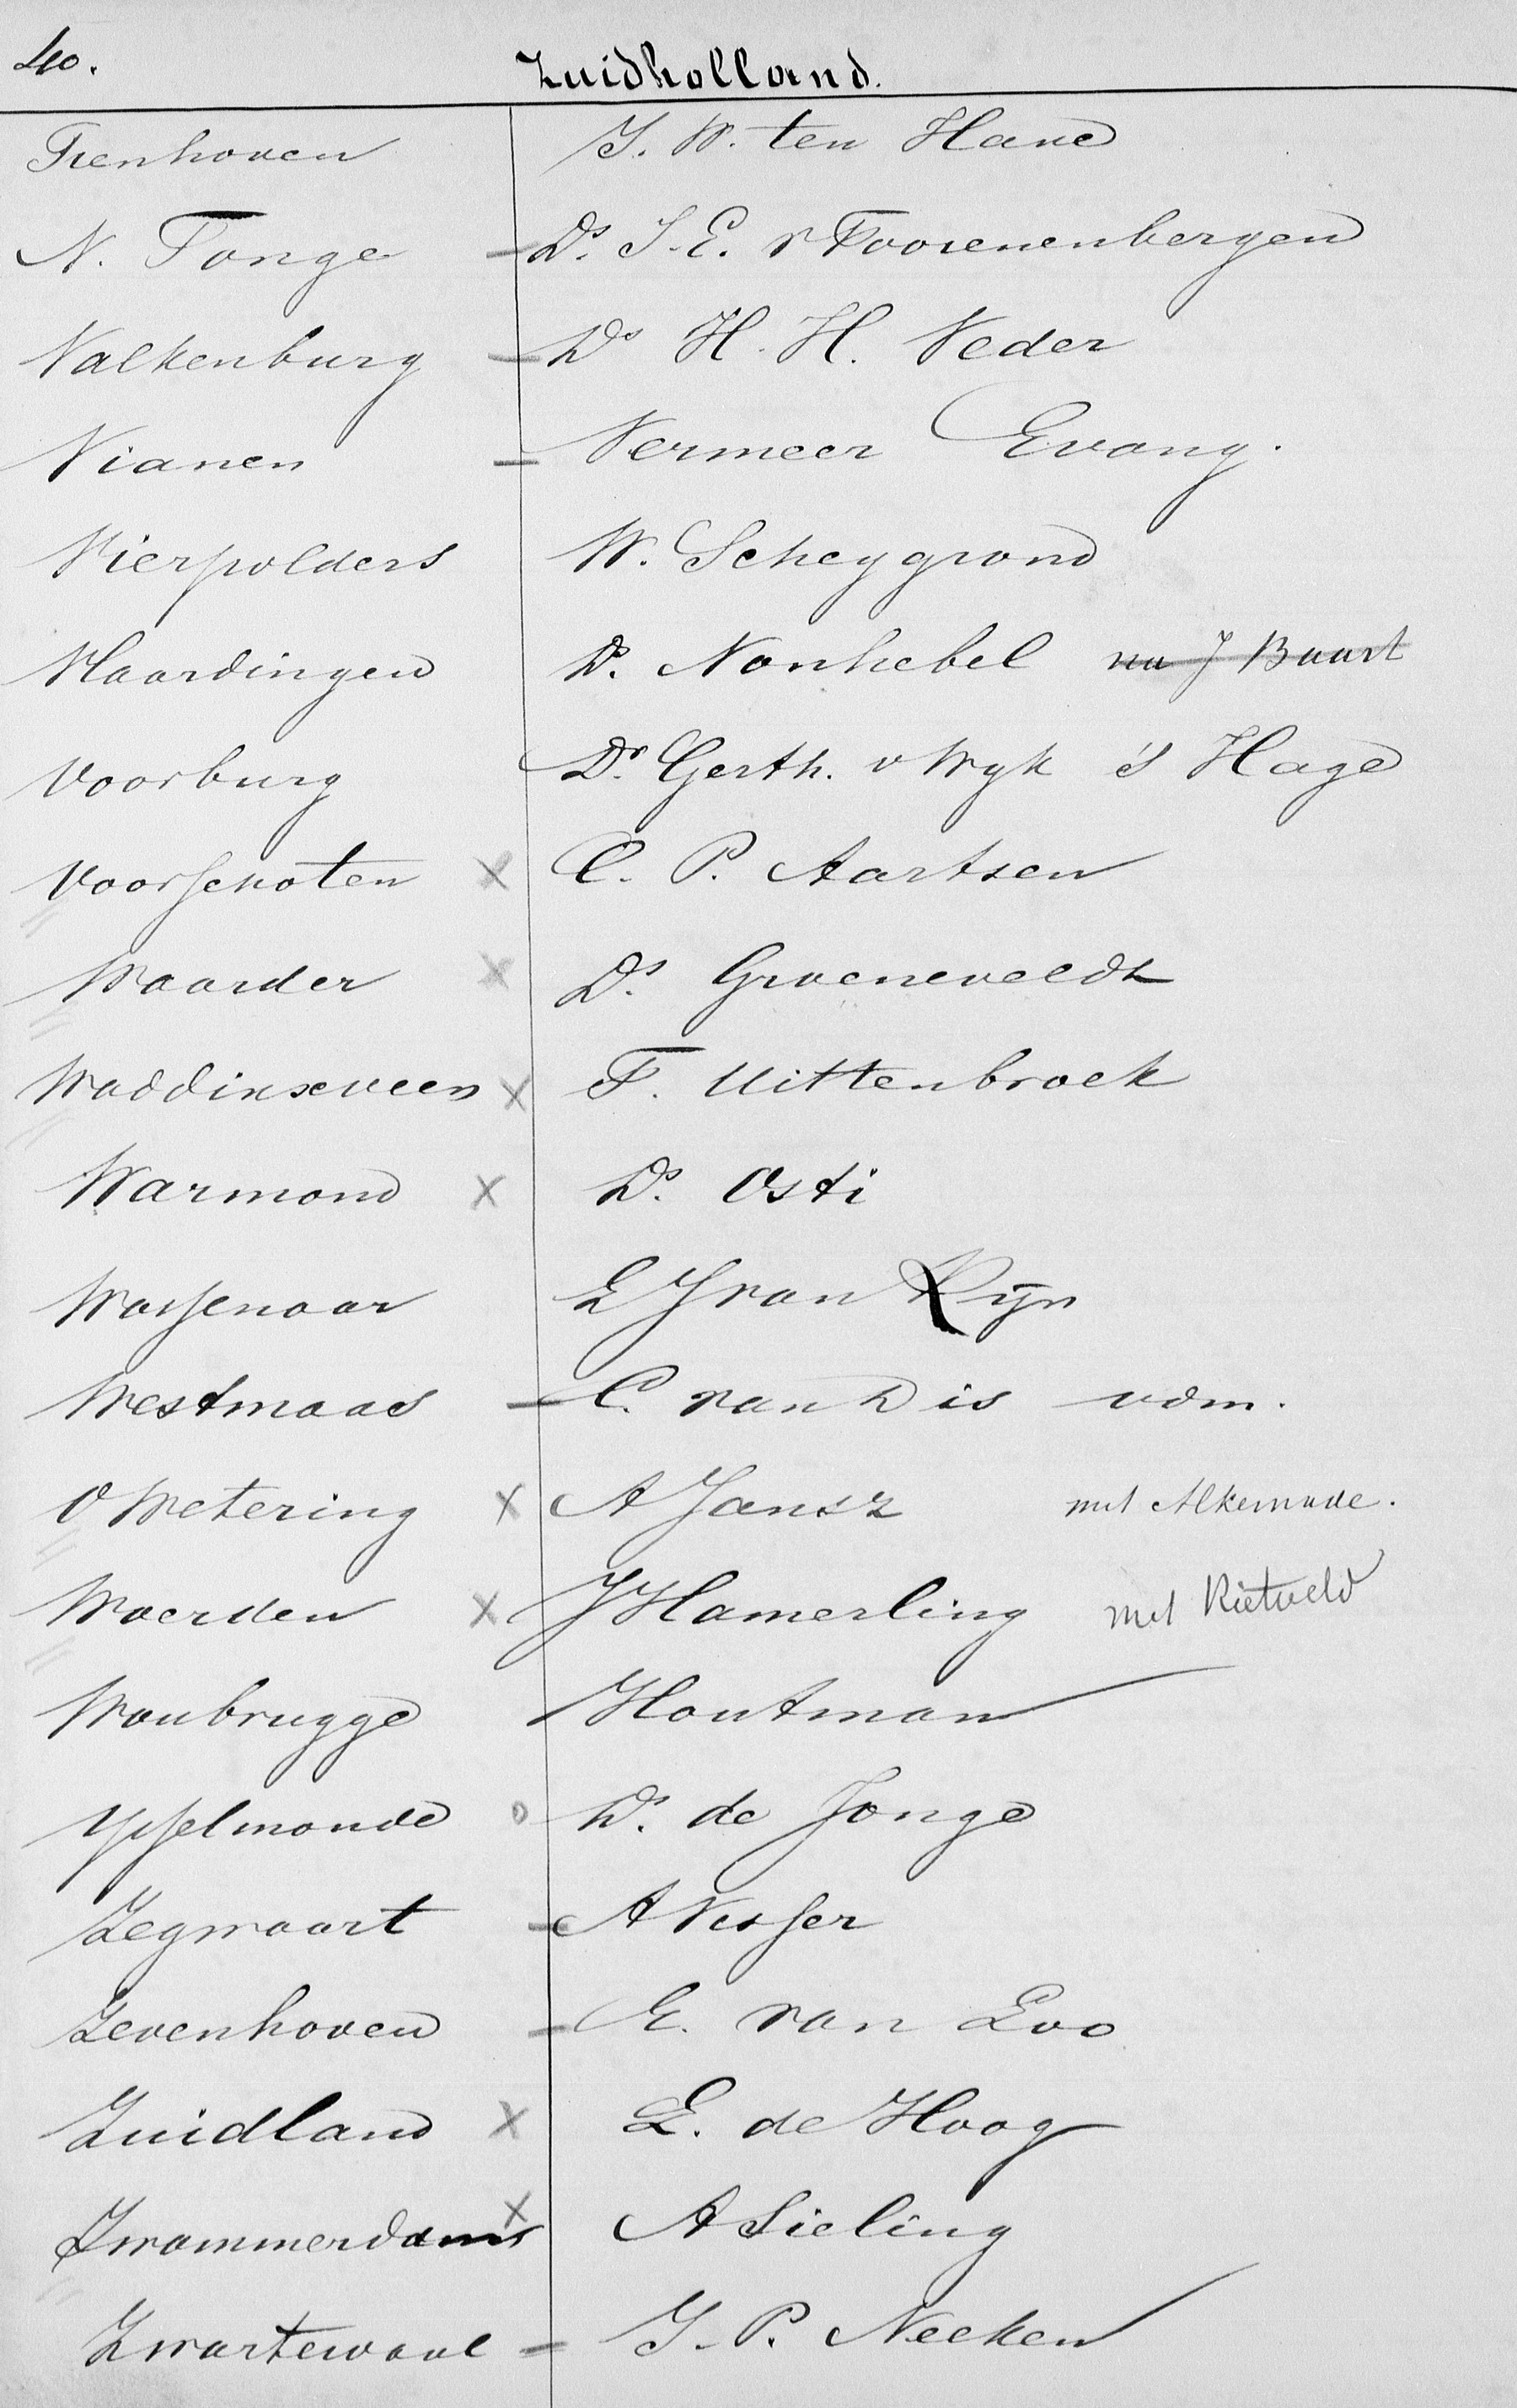 40. Zuidholland.
Tienhoven J. W. ten Have
N. Tonge – Ds. J. E. v Toorenenbergen
Valkenburg – Ds H. H. Veder
Vianen – Vermeer Evang.
Vierpolders W. Scheygrond
Vlaardingen Ds. Nonhebel J Buurt
Voorburg Dr. Gerth. v Wyk 's Hage
Voorschoten x C. P. Aartsen
Waarder x Ds. Groeneveldt
Waddinxveen x F. Uittenbroek
Warmond x Ds. Osti
Wassenaar L J van Rijn
Westmaas – C. van Dis vdm.
O Wetering x A Jansz met Alkemade.
Woerden x J Hamerling met Rietveld
Woubrugge Houtman
Ysselmonde o Ds. de Jonge
Zegwaart – A Visser
Zevenhoven – G. van Loo
Zuidland x L. de Hoog
Zwammerdam x A Sieling
Zwartewaal – J. P. Neeken